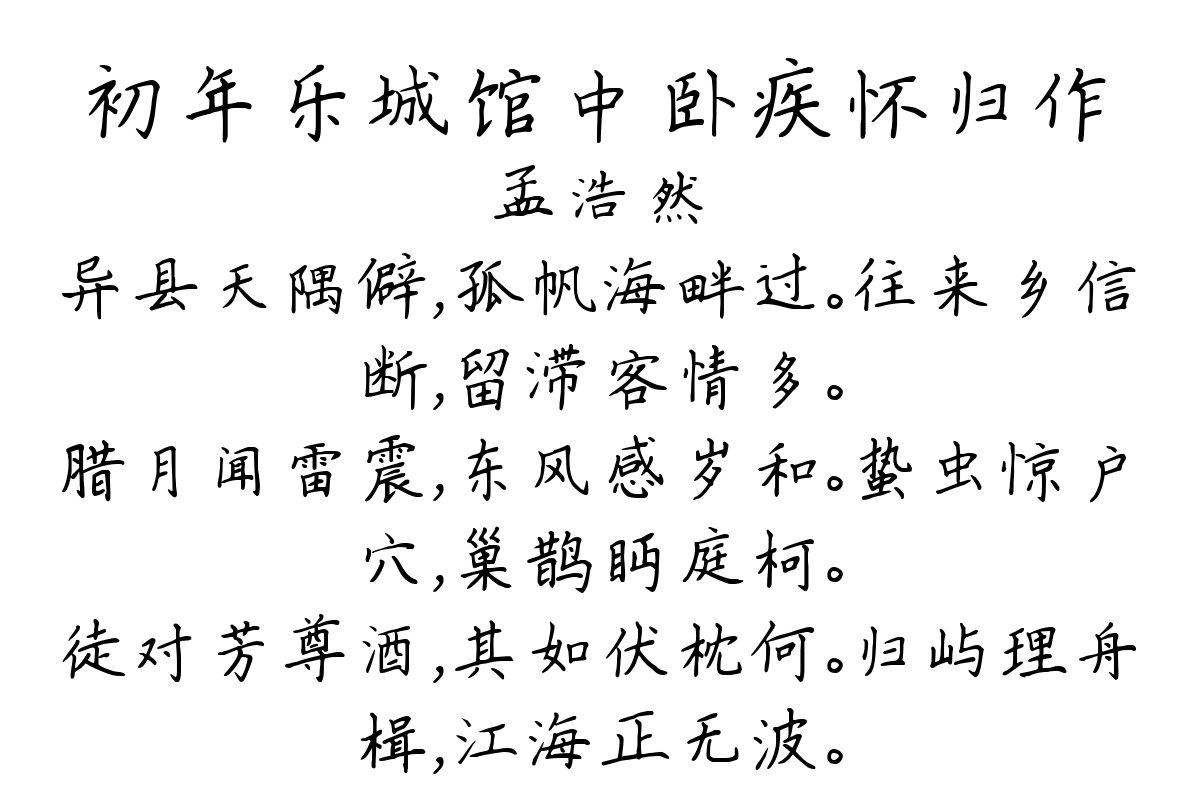 初年乐城馆中卧疾怀归作
孟浩然
异县天隅僻,孤帆海畔过。往来乡信
断,留滞客情多。
腊月闻雷震,东风感岁和。蛰虫惊户
穴,巢鹊眄庭柯。
徒对芳尊酒,其如伏枕何。归屿理舟
楫,江海正无波。